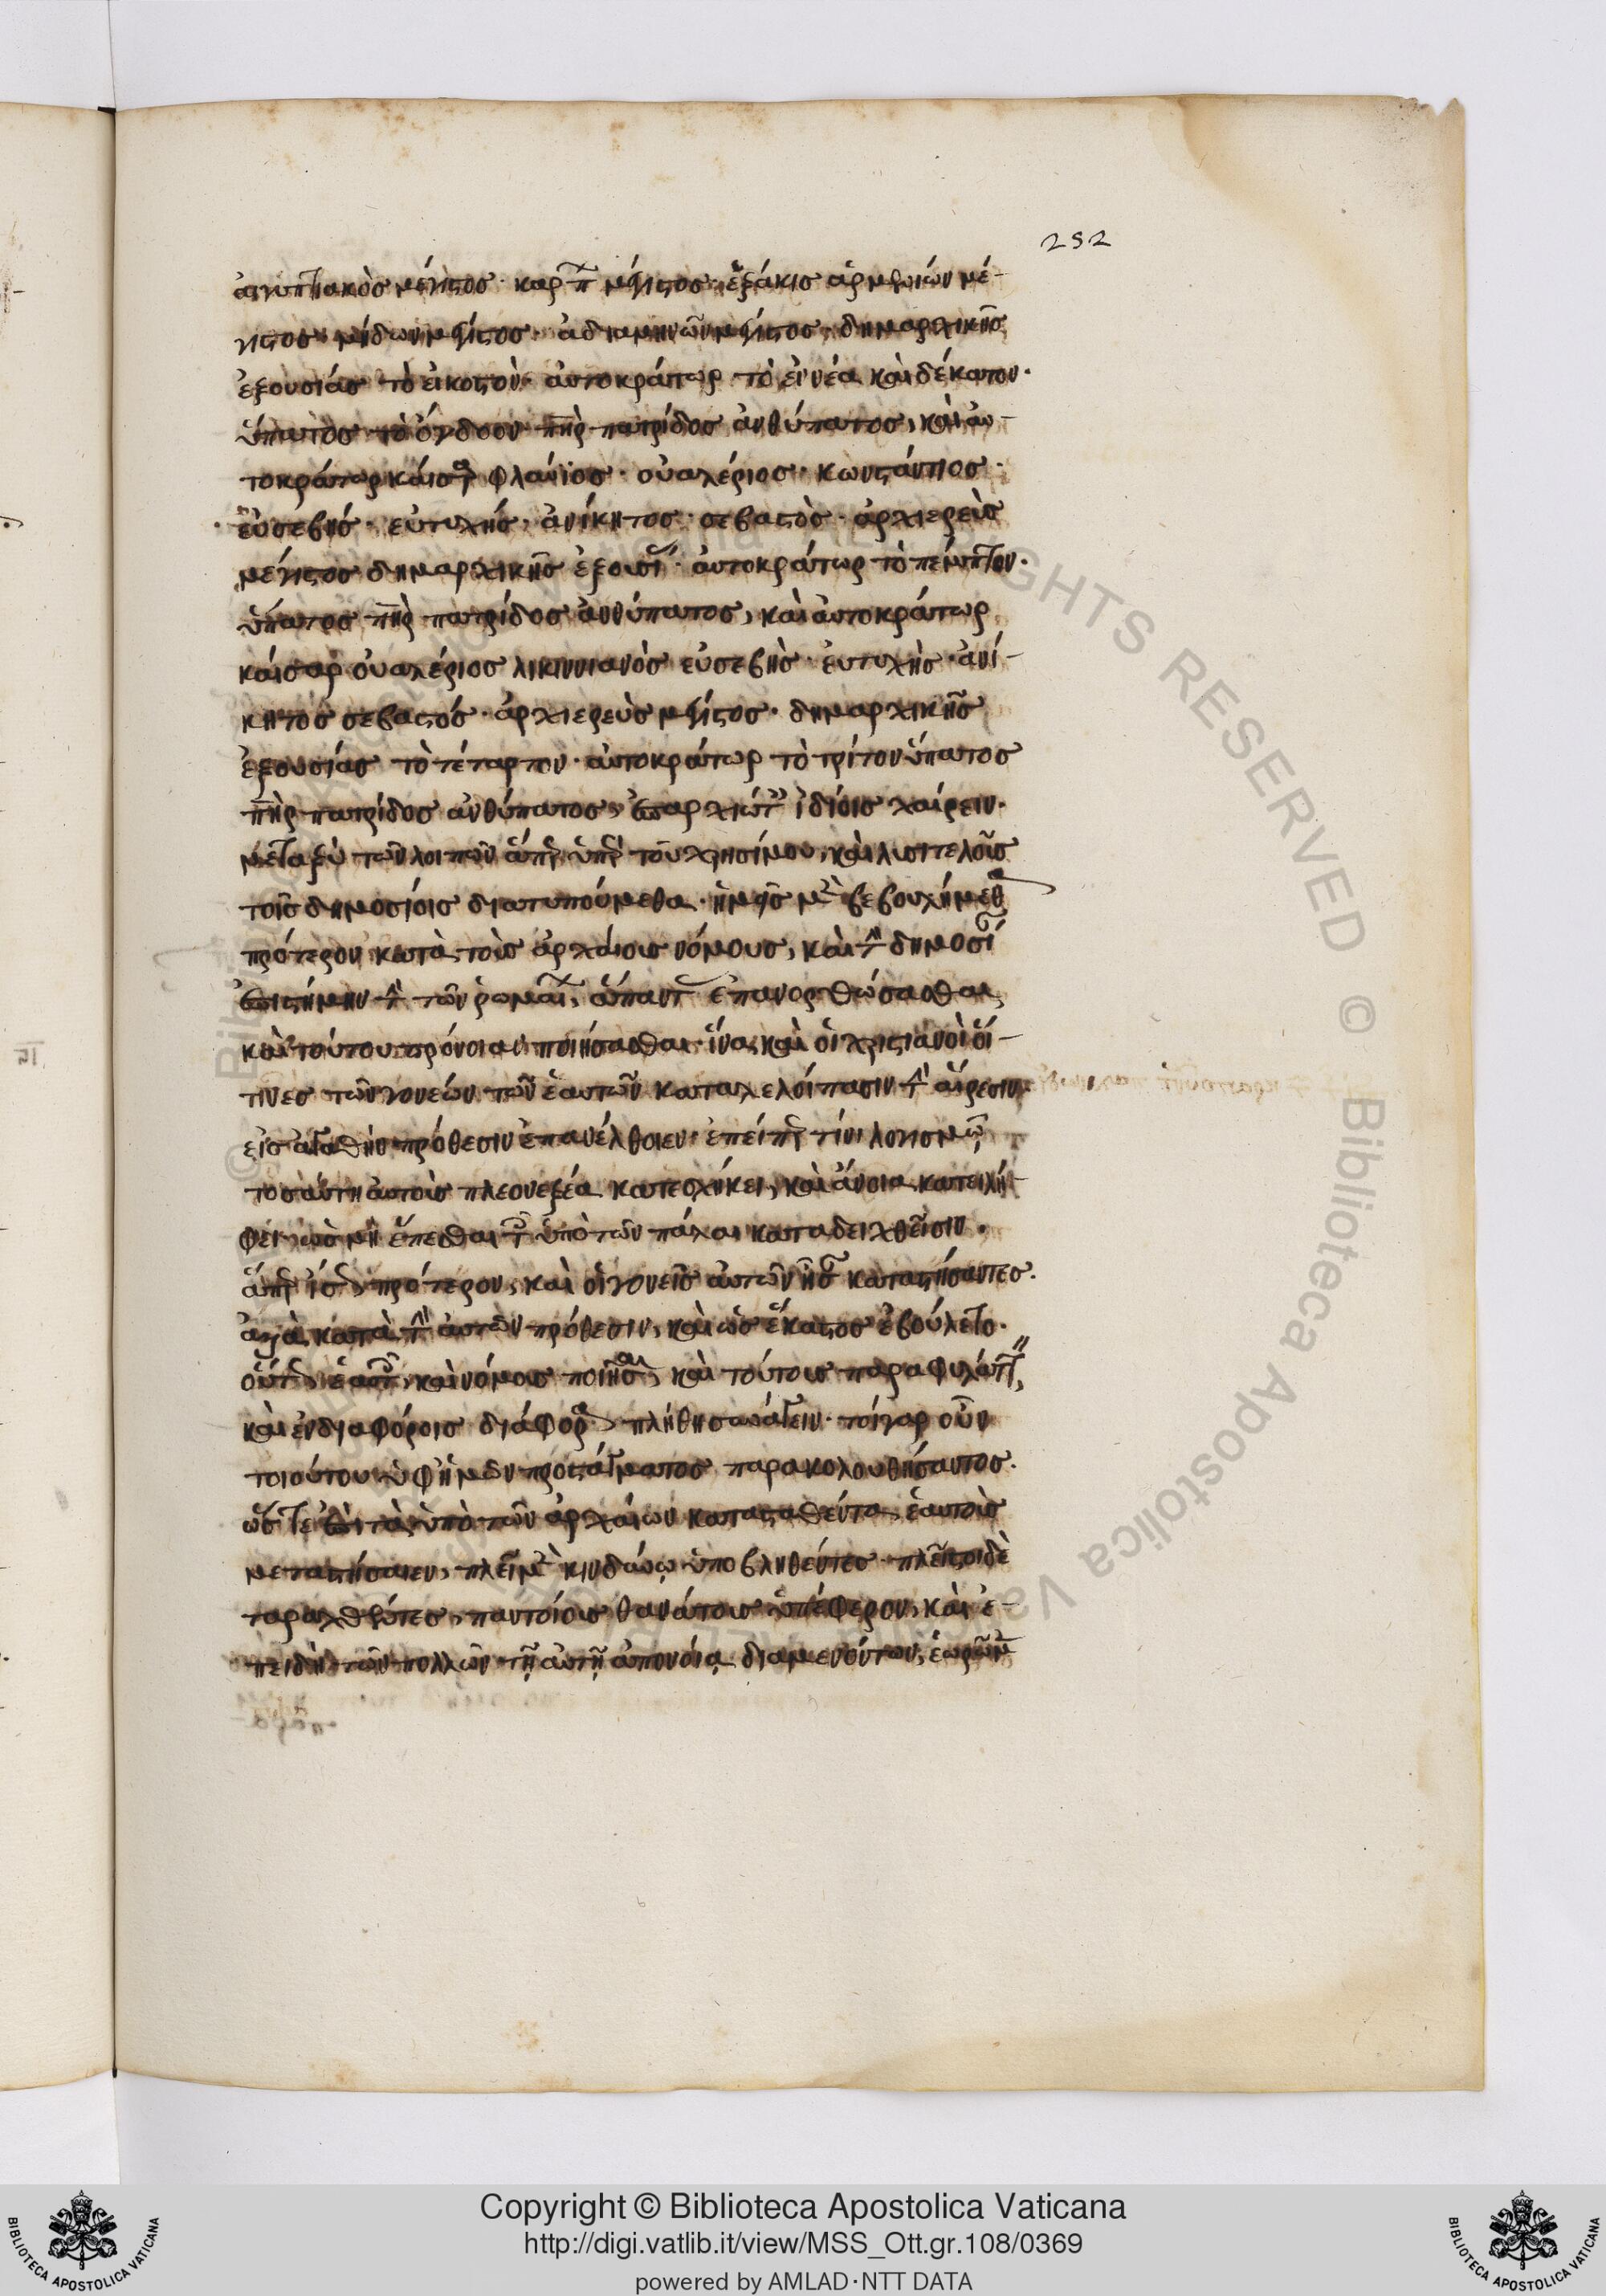 252
αἰγυπτιακὸς μέγιστος· καρπ μέγιστος· ἑξάκις ἀρμενίων μέ-
γιστος· μήδων μέγιστος· ἀδιαμηνῶν μέγιστος· δημαρχικῆς
ἐξουσίας τὸ εἰκοστὸν· αὐτοκράτωρ τὸ ἐννέα καὶ δέκατον·
ὕπατος τὸ ὄγδοον πηρ πατρίδος ἀνθύπατος, καὶ αὐ-
τοκράτωρ καίσαρ φλαύϊος· οὐαλέριος· κωνστάντιος·
εὐσεβής· εὐτυχής· ἀνίκητος· σεβαστὸς· ἀρχιερεὺς
μέγιστος δημαρχικῆς ἐξουσί· αὐτοκράτωρ τὸ πέμπτον·
ὕπατος πηρ πατρίδος ἀνθύπατος, καὶ αὐτοκράτωρ
καίσαρ οὐαλέριος λικιννιανὸς εὐσεβὴς· εὐτυχὴς· ἀνί-
κητος σεβαστός· ἀρχιερεὺς μέγιστος· δημαρχικῆς
ἐξουσίας τὸ τέταρτον· αὐτοκράτωρ τὸ τρίτον ὕπατος
πηρ πατρίδος ἀνθύπατος, ἐπαρχιώτ ἰδίοις χαίρειν·
μεταξὺ τῶν λοιπῶν ἅπερ ὑπὲρ τοῦ χρησίμου, καὶ λυσιτελοῦς
τοῖς δημοσίοις διατυπούμεθα· ἡμεῖς μὲν βεβουλήμεθα
πρότερον κατὰ τοὺς ἀρχαίους νόμους, καὶ τὴν δημοσί
ἐπιστήμην τὴν τῶν ῥωμαί, ἅπαντ ἐπανορθώσασθαι,
καὶ τούτου πρόνοιαν ποιήσασθαι· ἵνα καὶ οἱ χριστιανοὶ οἵ-
τινες τῶν γονέων τῶν ἑαυτῶν καταλελοίπασιν τὴν αἵρεσιν,
εἰς ἀγαθὴν πρόθεσιν ἐπανέλθοιεν· ἐπείπερ τίνι λογισμῷ
τοσαύτη αὐτοὺς πλεονεξέα κατεσχήκει, καὶ ἄνοια κατειλή-
φει· ὡς μὴ ἕπεσθαι τοῖς ὑπὸ τῶν πάλαι καταδειχθεῖσιν·
ἅπερ ἴσως πρότερον, καὶ οἱ γονεῖς αὐτῶν ἦσαν καταστήσαντες·
ἀλλὰ κατὰ τὴν αὐτῶν πρόθεσιν, καὶ ὡς ἕκαστος ἐβούλετο·
οὕτως ἑαυτοῖς, καὶ νόμους ποιῆσαι, καὶ τούτους παραφυλάττ,
καὶ ἐν διαφόροις διάφορα πλήθη συνάγειν· τοιγαροῦν
τοιούτου ὑφ' ἡμῶν προστάγματος παρακολουθήσαντος·
ὥστε ἐπὶ τὰ ὑπὸ τῶν ἀρχαίων κατασταθέντα ἑαυτοὺς
μεταστήσαιεν, πλεῖστοι μὲν κινδύνῳ ὑποβληθέντες· πλεῖστοι δὲ
ταραχθέντες, παντοίους θανάτους ὑπέφερον, καὶ ἐ-
πειδὴ τῶν πολλῶν τῇ αὐτῇ ἀπονοίᾳ διαμενόντων, ἑωρῶμεν
Copyright © Biblioteca Apostolica Vaticana
http://digi.vatlib.it/view/MSS_Ott.gr.108/0369
powered by AMLAD·NTT DATA